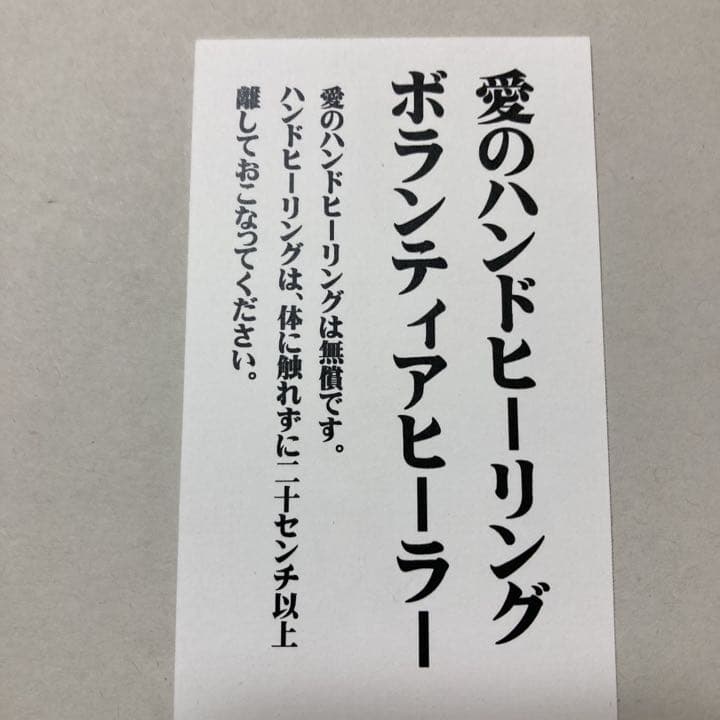 愛のハンドヒーリング
ボランティアヒーラー
愛のハンドヒーリングは無償です。
ハンドヒーリングは、体に触れずに二十センチ以上
離しておこなってください。